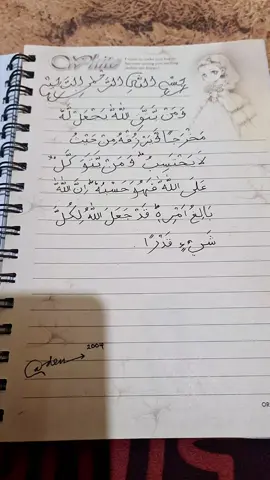 بِسْمِ اللّٰهِ الرَّحْمٰنِ الرَّحِيْمِ
وَمَنْ يَتَّقِ اللّٰهَ يَجْعَلْ لَّهٗ
مَخْرَجًا ۙ وَّيَرْزُقْهُ مِنْ حَيْثُ
لَا يَحْتَسِبُ ؕ وَمَنْ يَّتَوَكَّلْ
عَلَى اللّٰهِ فَهُوَ حَسْبُهٗ ؕ اِنَّ اللّٰهَ
بَالِغُ اَمْرِهٖ ؕ قَدْ جَعَلَ اللّٰهُ لِكُلِّ
شَيْءٍ قَدْرًا .
2009